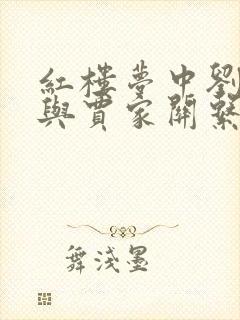 紅樓夢中劉
與賈家關繫
舞淺墨